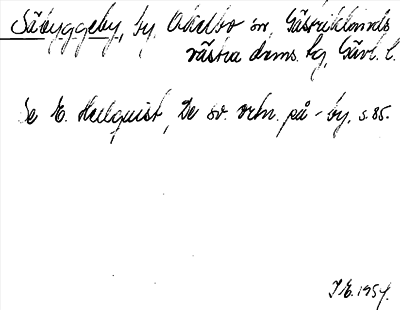 Säbyggeby, by, Ockelbo sn, Gästriklands
västra doms. hg, Gävl. l.
Se E. Hellquist, De sv. ortn. på -by, s. 85.
J E. 1954.